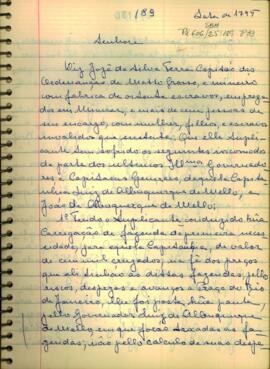 /89
Data de 1795
Senhora
Diz José da Silva Terra Capitão das
Ordenanças de Matto Grosso, e mineiro
com fabrica de oitenta escravos, emprega
dos em Minerar, e mais de cem pessoas de
seu encargo, com mulher, filhos, e escravos
invalidos que sustenta; Que elle Supli
cante tem sofrido os seguintes incomodos
da parte dos ultimos Illmos Governado
res e Capitaens Generaes, daquella Capita
nia Luiz de Albuquerque de Mello, e
João de Albuquerque de Mello;
1º Tendo o Suplicante conduzido hũa
Carregação de fazenda da primeira neces
sidade, para aquella Capitania, de valor
de cem mil cruzados, na fé dos preços
que ali tinhão as dittas fazendas, pellos
riscos, despezas e avanços a Praça do Rio
de Janeiro, lhe foi posta hũa pauta,
pello Governador Luiz de Albuquerque
de Mello, em que foram taxadas as fa
zendas; não pello calculo de suas despe